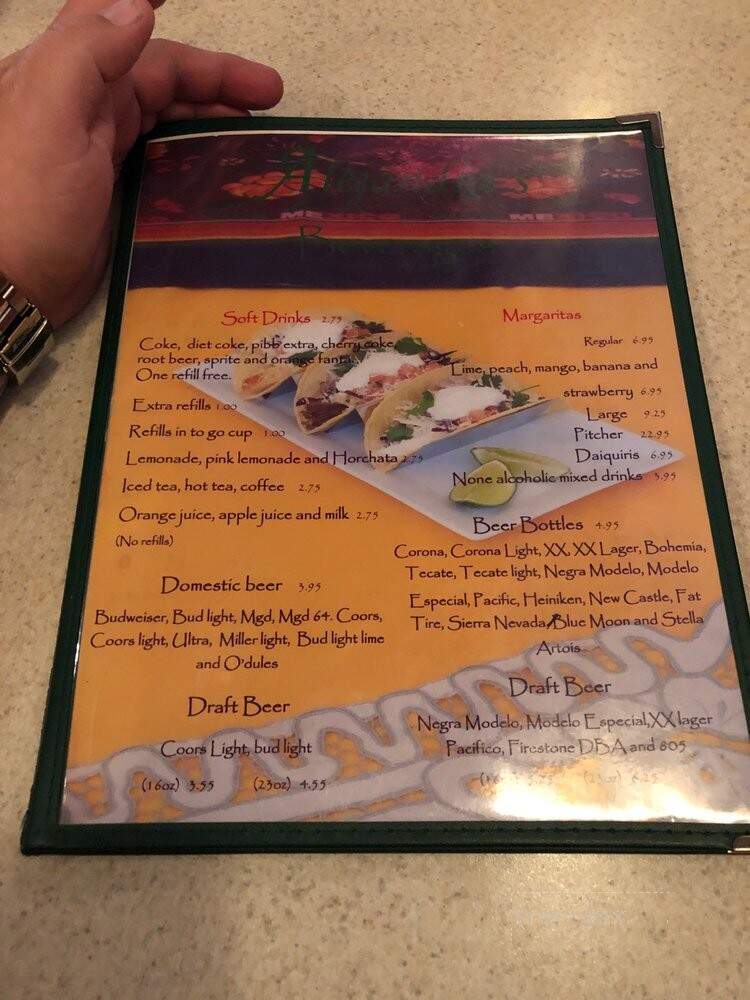 Alejandra's
MEXICO MEXICO
Beverages
Soft Drinks 2.75
Coke, diet coke, pibb extra, cherry coke,
root beer, sprite and orange fanta.
One refill free.
Extra refills 1.00
Refills in to go cup 1.00
Lemonade, pink lemonade and Horchata 2.75
Iced tea, hot tea, coffee 2.75
Orange juice, apple juice and milk 2.75
(No refills)
Domestic beer 3.95
Budweiser, Bud light, Mgd, Mgd 64. Coors,
Coors light, Ultra, Miller light, Bud light lime
and O'dules
Draft Beer
Coors Light, bud light
(16oz) 3.55 (23oz) 4.55
Margaritas
Regular 6.95
Lime, peach, mango, banana and
strawberry 6.95
Large 9.25
Pitcher 22.95
Daiquiris 6.95
None alcoholic mixed drinks 5.95
Beer Bottles 4.95
Corona, Corona Light, XX, XX Lager, Bohemia,
Tecate, Tecate light, Negra Modelo, Modelo
Especial, Pacific, Heiniken, New Castle, Fat
Tire, Sierra Nevada, Blue Moon and Stella
Artois
Draft Beer
Negra Modelo, Modelo Especial, XX lager
Pacifico, Firestone DBA and 805
(23oz) 6.25